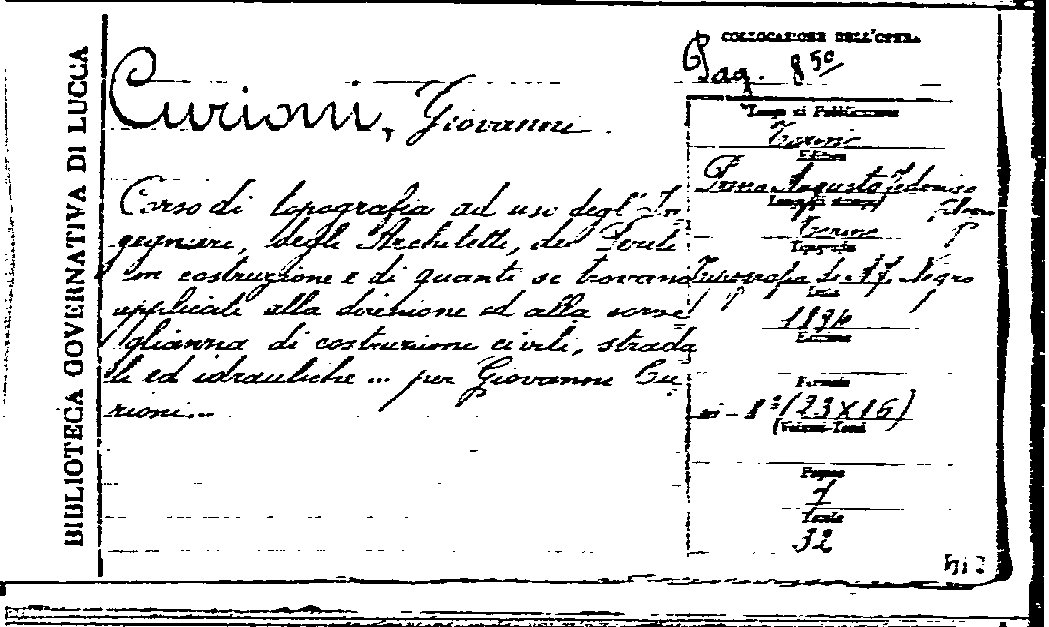 BIBLIOTECA GOVERNATIVA DI LUCCA
COLLOCAZIONE DELL'OPERA
Pag. 850
Curioni, Giovanni.
Corso di topografia ad uso degl'In
gegnieri, degli Architetti, dei Periti
in costruzione e di quanti si trovano
applicati alla direzione ed alla sorve
glianza di costruzione civili, strada
li ed idrauliche ... per Giovanni Cu-
rioni...
Luogo di Pubblicazione
Torino
Editore
Augusto Federico
Luogo di stampa
Torino
Tipografia
Tipografia di A. F. Negro
Data
Edizione
Formato
in-8° (23X16)
Volumi-Tomi
Pagine
7
Tavole
32